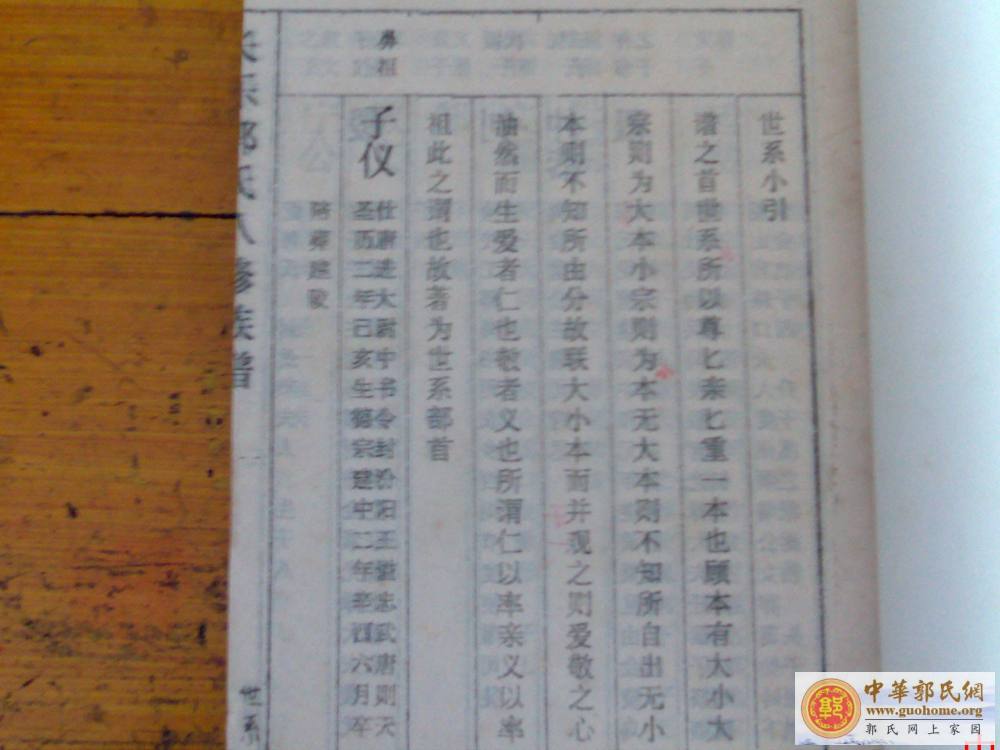 世系小引
谱之首世系所以尊匕亲匕重一本也顾本有大小大
宗则为大本小宗则为本无大本则不知所自出无小
本则不知所由分故联大小本而并观之则爱敬之心
油然而生爱者仁也敬者义也所谓仁以率亲义以率
祖此之谓也故著为世系部首
鼻祖
子仪
仕唐进大尉中书令封汾阳王谥忠武唐则天
圣历二年己亥生德宗建中二年辛酉六月卒
陪葬建陵
郭氏八修族谱
世系
中華郭氏網
www.guohome.org
郭氏网上家园